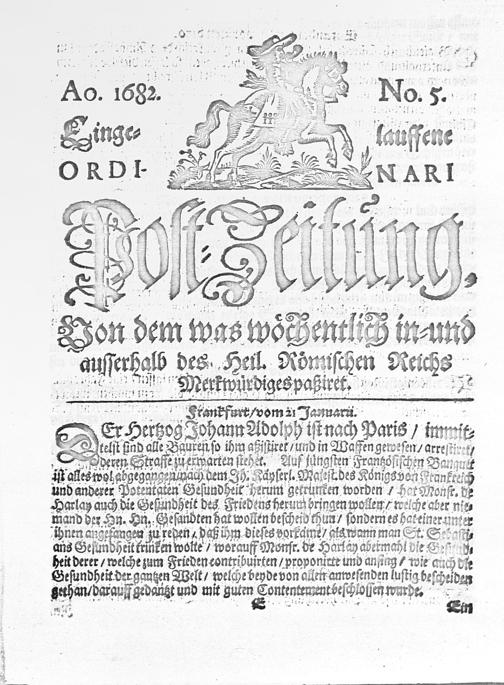 Ao. 1682. No. 5.
Einge= lauffene
ORDI- NARI
Post=Zeitung,
Von dem was wöchentlich in=und
ausserhalb des Heil. Römischen Reichs
Merkwürdiges paßiret.
Franckfurt/vom 21 Januarii.
DEr Hertzog Johann Adolph ist nach Paris / immit-
telst sind alle Bauren so ihm aßistiret/und in Waffen gewesen/arrestiret/
deren Straffe zu erwarten stehet. Auf jüngsten Französischen Banquet
ist alles wol abgegangen/nach dem Ih. Käyserl. Majest. des Königs von Franckreich
und anderer Potentaten Gesundheit herum getruncken worden / hat Monsr. de
Harlay auch die Gesundheit des Friedens herum bringen wollen/welche aber nie-
mand der Hn. Hn. Gesandten hat wollen bescheid thun/ sondern es hat einer unter
ihnen angefangen zu reden, daß ihm dieses vorkäme/als wann man St. Sebasti-
ans Gesundheit trincken wolte / worauff Monsr. de Harlay abermahl die Gesund-
heit derer / welche zum Frieden contribuirten / proponirte und anfing / wie auch die
Gesundheit der gantzen Welt / welche beyde von allen anwesenden lustig bescheiden
gethan/darauff gedantzt und mit guten Contentement beschlossen wurde.
E Ein